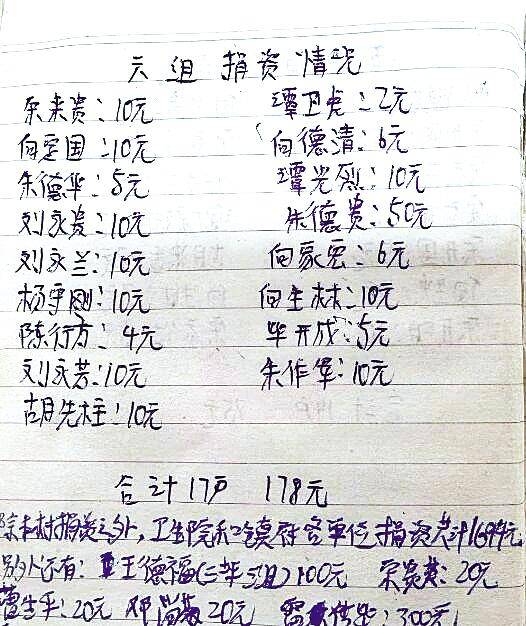 六组捐资情况
余来贵：10元 潭卫虎：2元
向定国：10元 向德清：6元
朱德华：5元 潭光烈：10元
刘永贵：10元 朱德贵：50元
刘永兰：10元 向家宏：6元
杨宇刚：10元 向主林：10元
陈行方：4元 毕开成：5元
刘永芳：10元 朱作军：10元
胡先柱：10元
合计17户 178元
除本村捐资之外，卫生院和镇府各单位捐资共计1694元
另外还有：王德福(二组)100元 20元
20元 邓 20元 300元